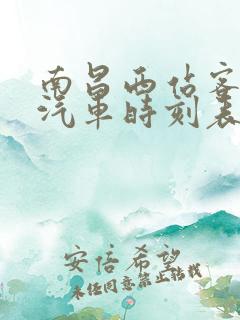 南昌西站客
汽车时刻表
安倍希望
未经同意禁止转载